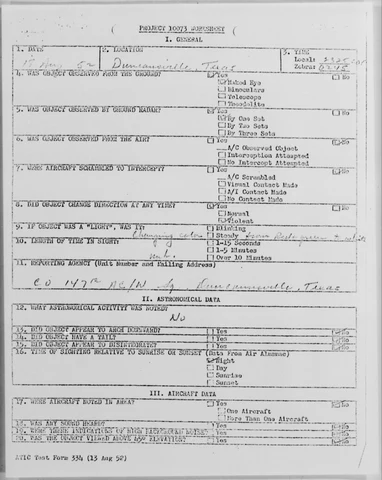 PROJECT 10073 WORKSHEET
I. GENERAL
1. DATE
2. LOCATION
3. TIME
Duncanville, Texas
Local:
Zebra:
4. WAS OBJECT OBSERVED FROM THE GROUND?
Yes No
Naked Eye
Binoculars
Telescope
Theodolite
5. WAS OBJECT OBSERVED BY GROUND RADAR?
Yes No
By One Set
By Two Sets
By Three Sets
6. WAS OBJECT OBSERVED FROM THE AIR?
Yes No
A/C Observed Object
Interception Attempted
No Intercept Attempted
7. WERE AIRCRAFT SCRAMBLED TO INTERCEPT?
Yes No
A/C Scrambled
Visual Contact Made
A/I Contact Made
No Contact Made
8. DID OBJECT CHANGE DIRECTION AT ANY TIME?
Yes No
Normal
Violent
9. IF OBJECT WAS A "LIGHT", WAS IT:
Blinking
Changing color
Steady
10. LENGTH OF TIME IN SIGHT:
1-15 Seconds
1-15 Minutes
Over 10 Minutes
11. REPORTING AGENCY (Unit Number and Mailing Address)
CO 147th AC/W Sq Duncanville, Texas
II. ASTRONOMICAL DATA
12. WHAT ASTRONOMICAL ACTIVITY WAS NOTED?
No
13. DID OBJECT APPEAR TO ARCH DOWNWARD?
Yes No
14. DID OBJECT HAVE A TAIL?
Yes No
15. DID OBJECT APPEAR TO DISINTEGRATE?
Yes No
16. TIME OF SIGHTING RELATIVE TO SUNRISE OR SUNSET (Data From Air Almanac)
Night
Day
Sunrise
Sunset
III. AIRCRAFT DATA
17. WERE AIRCRAFT NOTED IN AREA?
Yes No
One Aircraft
More Than One Aircraft
18. WAS ANY SOUND HEARD?
Yes No
19. WERE THERE INDICATIONS OF HIGH BACKGROUND NOISE?
Yes No
20. WAS THE OBJECT VIEWED ABOVE 45° ELEVATION?
Yes No
ATIC Test Form 334 (13 Aug 52)